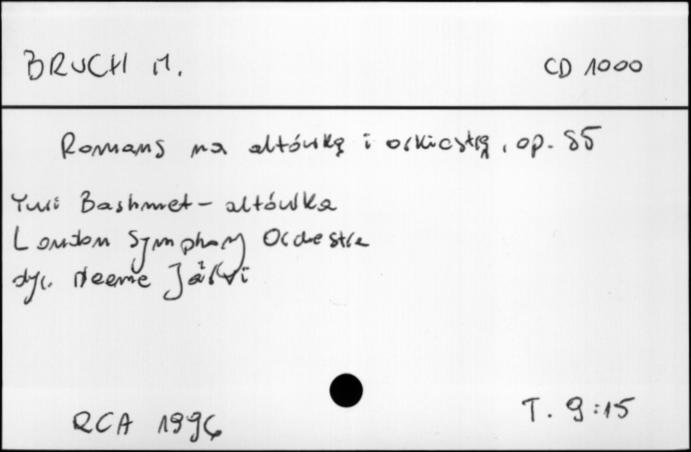 BRUCH M.
CD 1000
Romans na altówkę i orkiestrę, op. 85
Yuri Bashmet - altówka
London Symphony Orchestra
dyr. Neeme Järvi
RCA 1996
T. 9:15